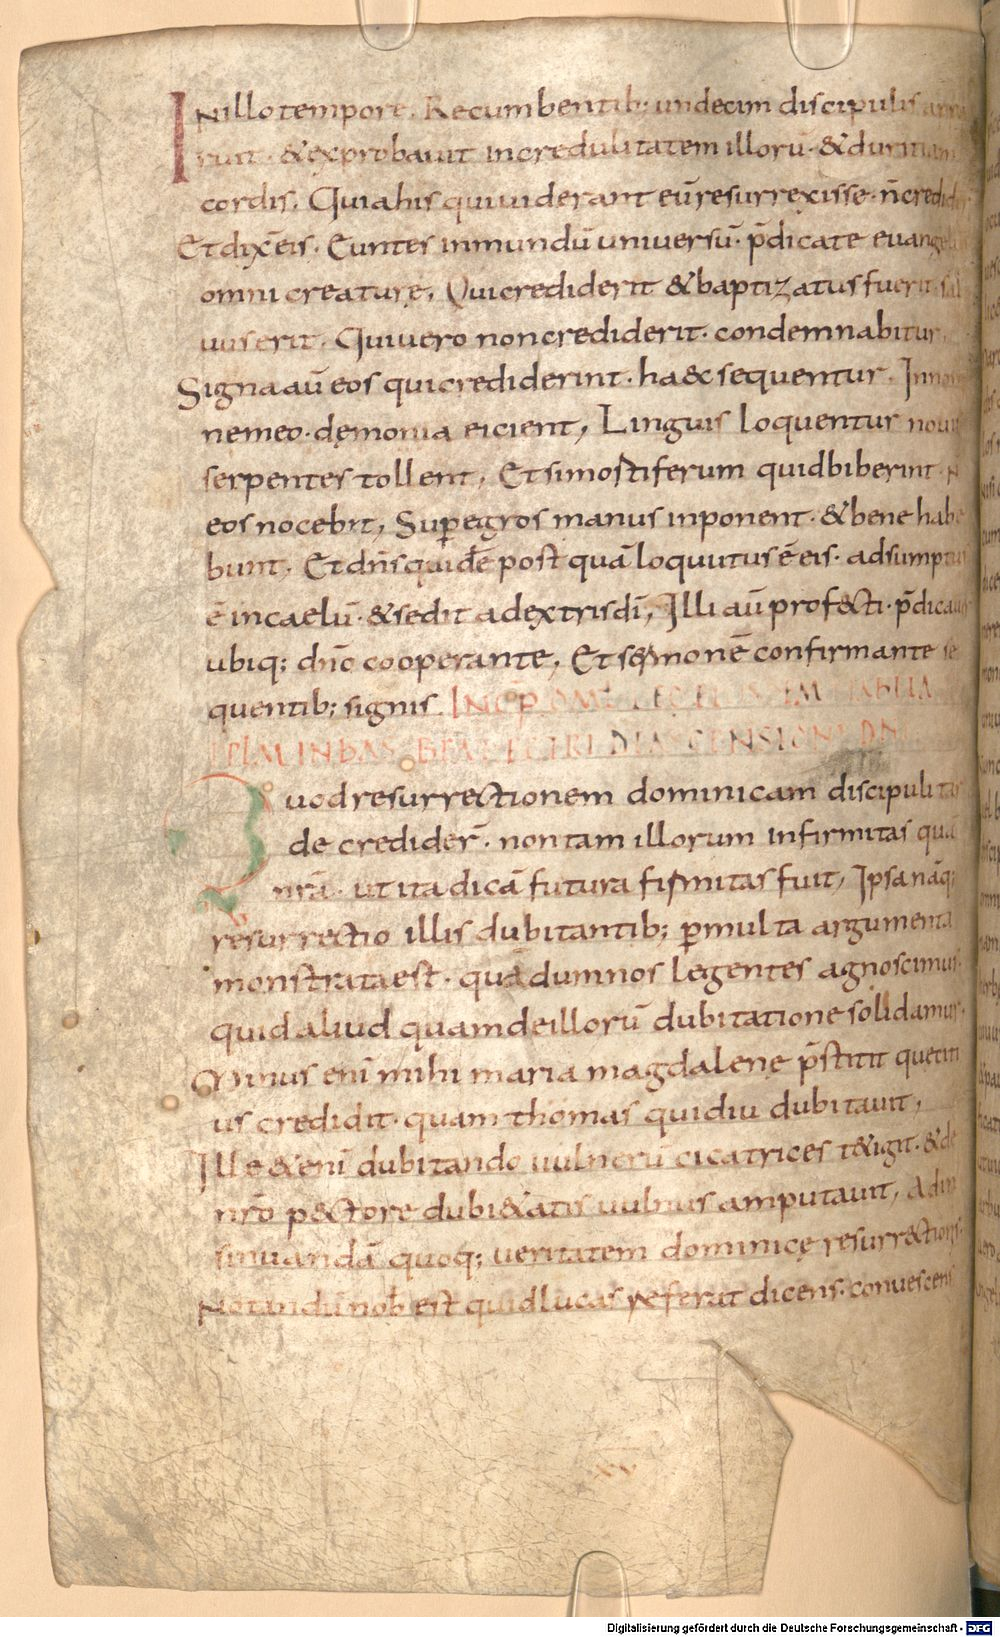 Nillo tempore. Recumbentib; undecim discipulis
ruit. &exprobauit incredulitatem illorū. &duritiam
cordis. Quia his qui uiderant eū resurrexisse. n̄ credider
Et dix̄ eis. Euntes in mundū universū. p̄dicate evangeli
omni creature. Qui crediderit & baptizatus fuerit. sal
uus erit. Qui uero non crediderit. condemnabitur.
Signa aū eos qui crediderint. haec sequentur. In no
ne meo. demonia eicient, Linguis loquentur nouis
serpentes tollent, Et si mostiferum quid biberint. N
eos nocebit, Sup egros manus inponent. & bene habe
bunt. Et dn̄s quidē post quā loquutus ē eis. adsumptus
ē in caelū. & sedit a dextris dī, Illi aū profecti. p̄dicau
ubiq; dn̄o cooperante, Et sermonē confirmante se
quentib; signis INCP OML LEC
IN BAS BEAT PETRI DIE ASCENSIONI DNI
Quod resurrectionem dominicam discipuli tar
de credider̄. non tam illorum infirmitas quā
nr̄a. ut ita dicā futura firmitas fuit, Ipsa nāq;
resurrectio illis dubitantib; p multa argumenta
monstrata est. quā dum nos legentes agnoscimus.
quid aliud quam de illorū dubitatione solidamur.
Minus enī mihi maria magdalene p̄stitit que citi
us credidit. quam thomas qui diu dubitauit,
Ille &enī dubitando uulnerū cicatrices t&igit. & de
nr̄o pectore dubi&atis uulnus amputauit, Ad in
sinuandā quoq; ueritatem dominice resurrectionis.
Notandū nob̄ est quid lucas referat dicens. convescens
Digitalisierung gefördert durch die Deutsche Forschungsgemeinschaft - DFG